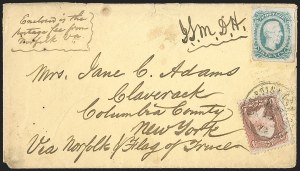 Enclosed is the
postage fee from
Norfolk Va.
Mrs. Jane C. Adams
Claverack
Columbia County
New York
Via Norfolk & Flag of Truce